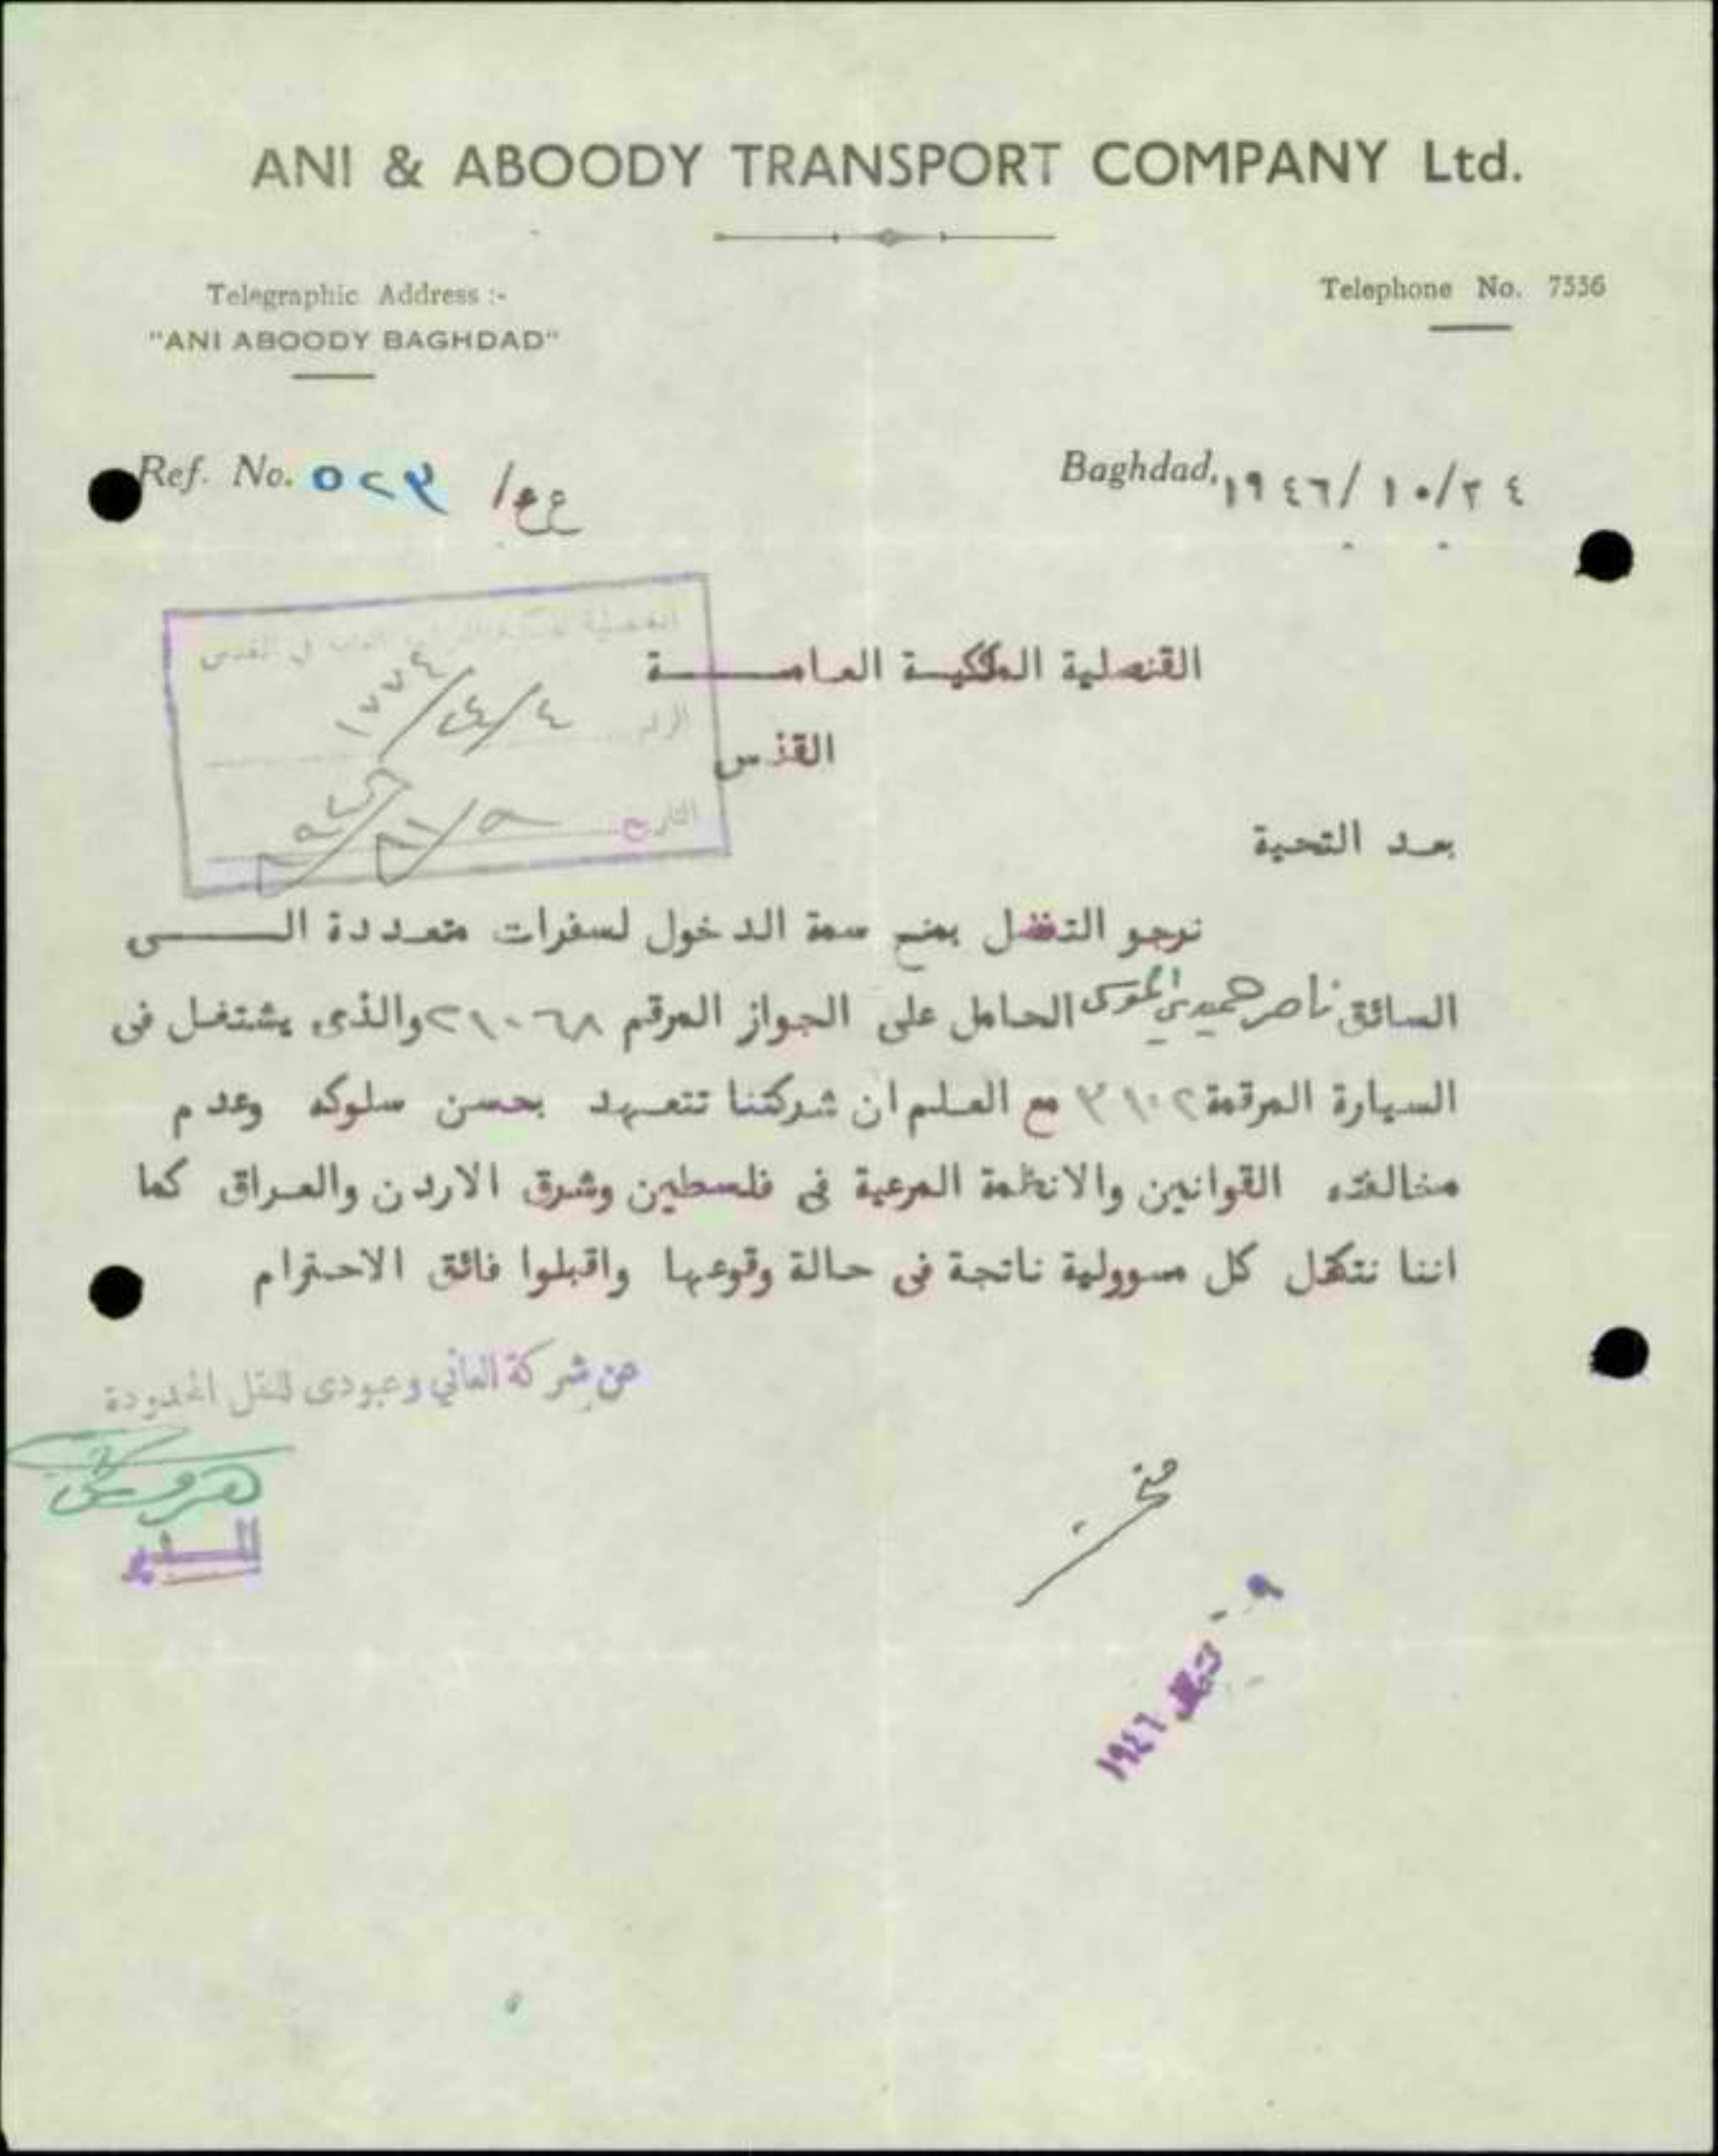 ANI & ABOODY TRANSPORT COMPANY Ltd.
Telegraphic Address :-
"ANI ABOODY BAGHDAD"
Telephone No. 7536
Ref. No. ٥٢٩ /ع ع
Baghdad, ١٩٤٦/١٠/٢٤
القنصلية الملكية العامـــــة
القدس
الرقم ١٧٧٤/٤٤/٤
التاريخ
بعد التحية
نرجو التفضل بمنح سمة الدخول لسفرات متعددة الــــى
السائق ناصر حميدي الحامل على الجواز المرقم ٢١٠٦٨ والذى يشتغل فى
السيارة المرقمة ٣١٠٢ مع العلم ان شركتنا تتعهد بحسن سلوكه وعدم
مخالفته القوانين والانظمة المرعية فى فلسطين وشرق الاردن والعراق كما
اننا نتكفل كل مسوولية ناتجة فى حالة وقوعها واقبلوا فائق الاحترام
عن شركة العاني وعبودى للنقل المحدودة
المدير
٩ - ١٩٤٦